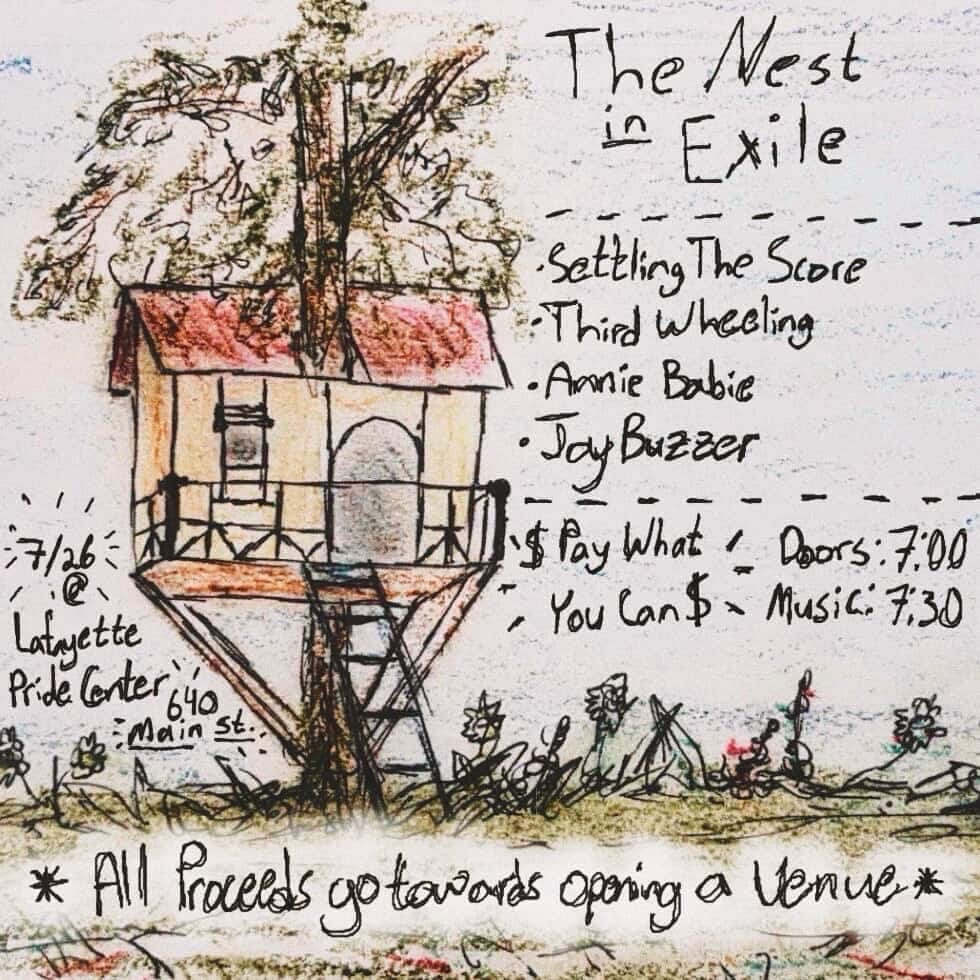 The Nest
in Exile
· Settling The Score
· Third Wheeling
· Annie Babie
· Jay Buzzer
$ Pay What
You Can $
Doors: 7:00
Music: 7:30
7/26
@
Lafayette
Pride Center
640
Main St.
* All Proceeds go towards opening a Venue *